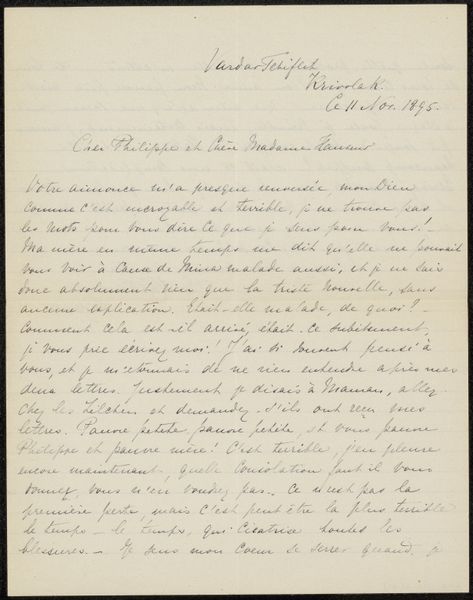 Vardar Tchiflit
Krivolak.
Ce 11 Nov. 1895.
Cher Philippe et Chère Madame
Votre annonce m'a presque renversée, mon Dieu
comme c'est incroyable et terrible, je ne trouve pas
les mots pour vous dire ce que je sens pour vous! -
Ma mère en même temps me dit qu'elle ne pouvait
vous voir à cause de Mina malade aussi, et je ne sais
donc absolument rien que la triste nouvelle, sans
aucune explication. Etait-elle malade, de quoi? -
Comment cela est-il arrivé, était-ce subitement,
je vous prie écrivez moi! J'ai si souvent pensé à
vous, et je m'étonnais de ne rien entendre après mes
deux lettres. Justement je disais à Maman, allez
chez les Zilcken et demandez s'ils ont reçu mes
lettres. Pauvre petite, pauvre petite, et vous pauvre
Philippe et pauvre mère! C'est terrible, j'en pleure
encore maintenant, quelle consolation faut il vous
donner, vous n'en voudrez pas. Ce n'est pas la
première perte, mais c'est peut être la plus terrible
le temps - le temps, qui cicatrise toutes les
blessures. - Je sens mon coeur se serrer quand je